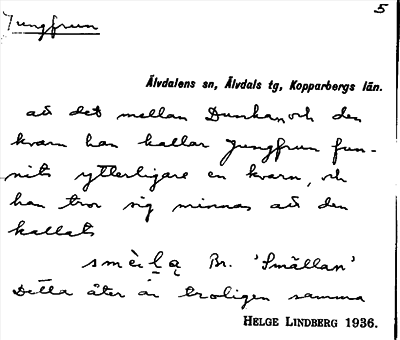 5
Jungfrun
Älvdalens sn, Älvdals tg, Kopparbergs län.
att det mellan Dunkan och den
kvarn han kallar Jungfrun fun-
nits ytterligare en kvarn, och
han tror sig minnas att den
kallats
Br. 'Smällan'
Detta åter är troligen samma
HELGE LINDBERG 1936.